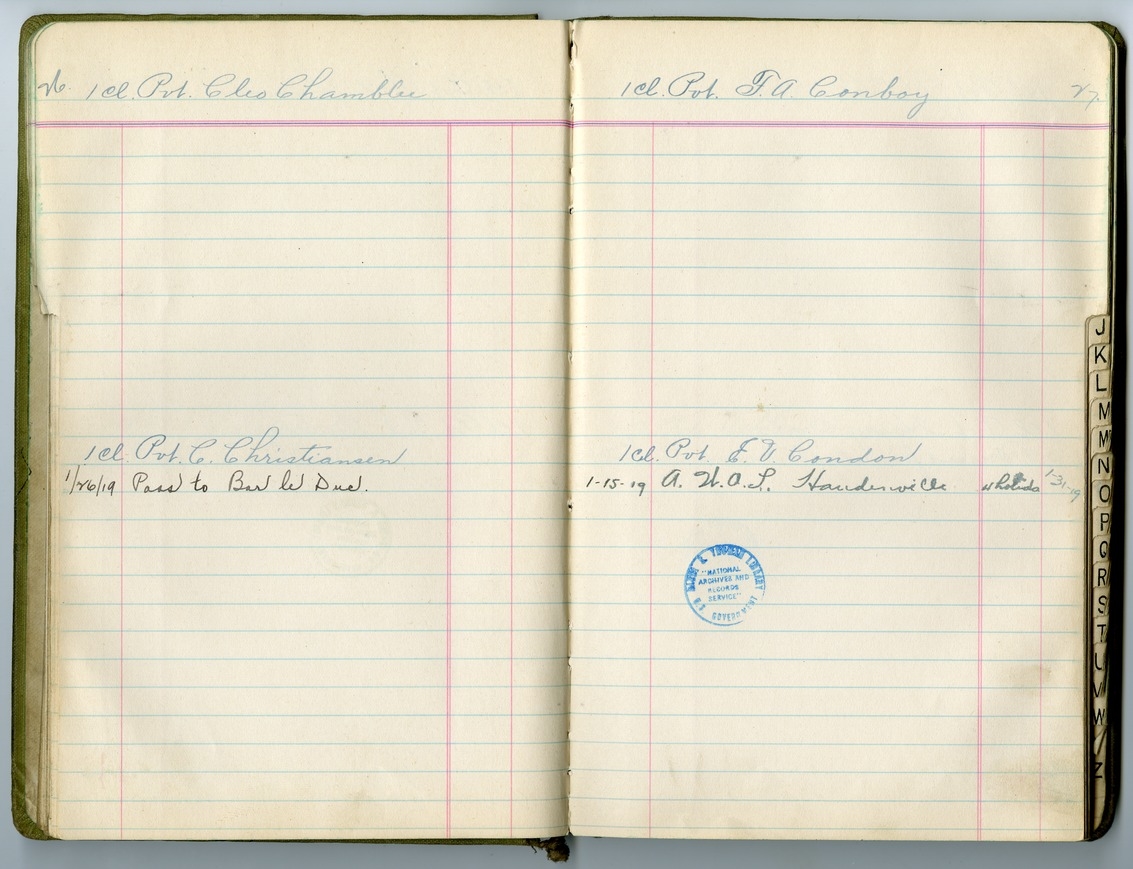 26. 1cl. Pvt. Cleo Chamblee
1cl. Pvt. C. Christiansen
1/26/19 Pass to Bar le Duc.
1cl. Pvt. F. A. Conboy 27.
1cl. Pvt. E. V. Condon
1-15-19 A. W. O. L. 1-31-19
HARRY S. TRUMAN LIBRARY
"NATIONAL
ARCHIVES AND
RECORDS
SERVICE"
U.S. GOVERNMENT
J
K
L
M
Mc
N
O
P
Q
R
S
T
U
V
W
Z